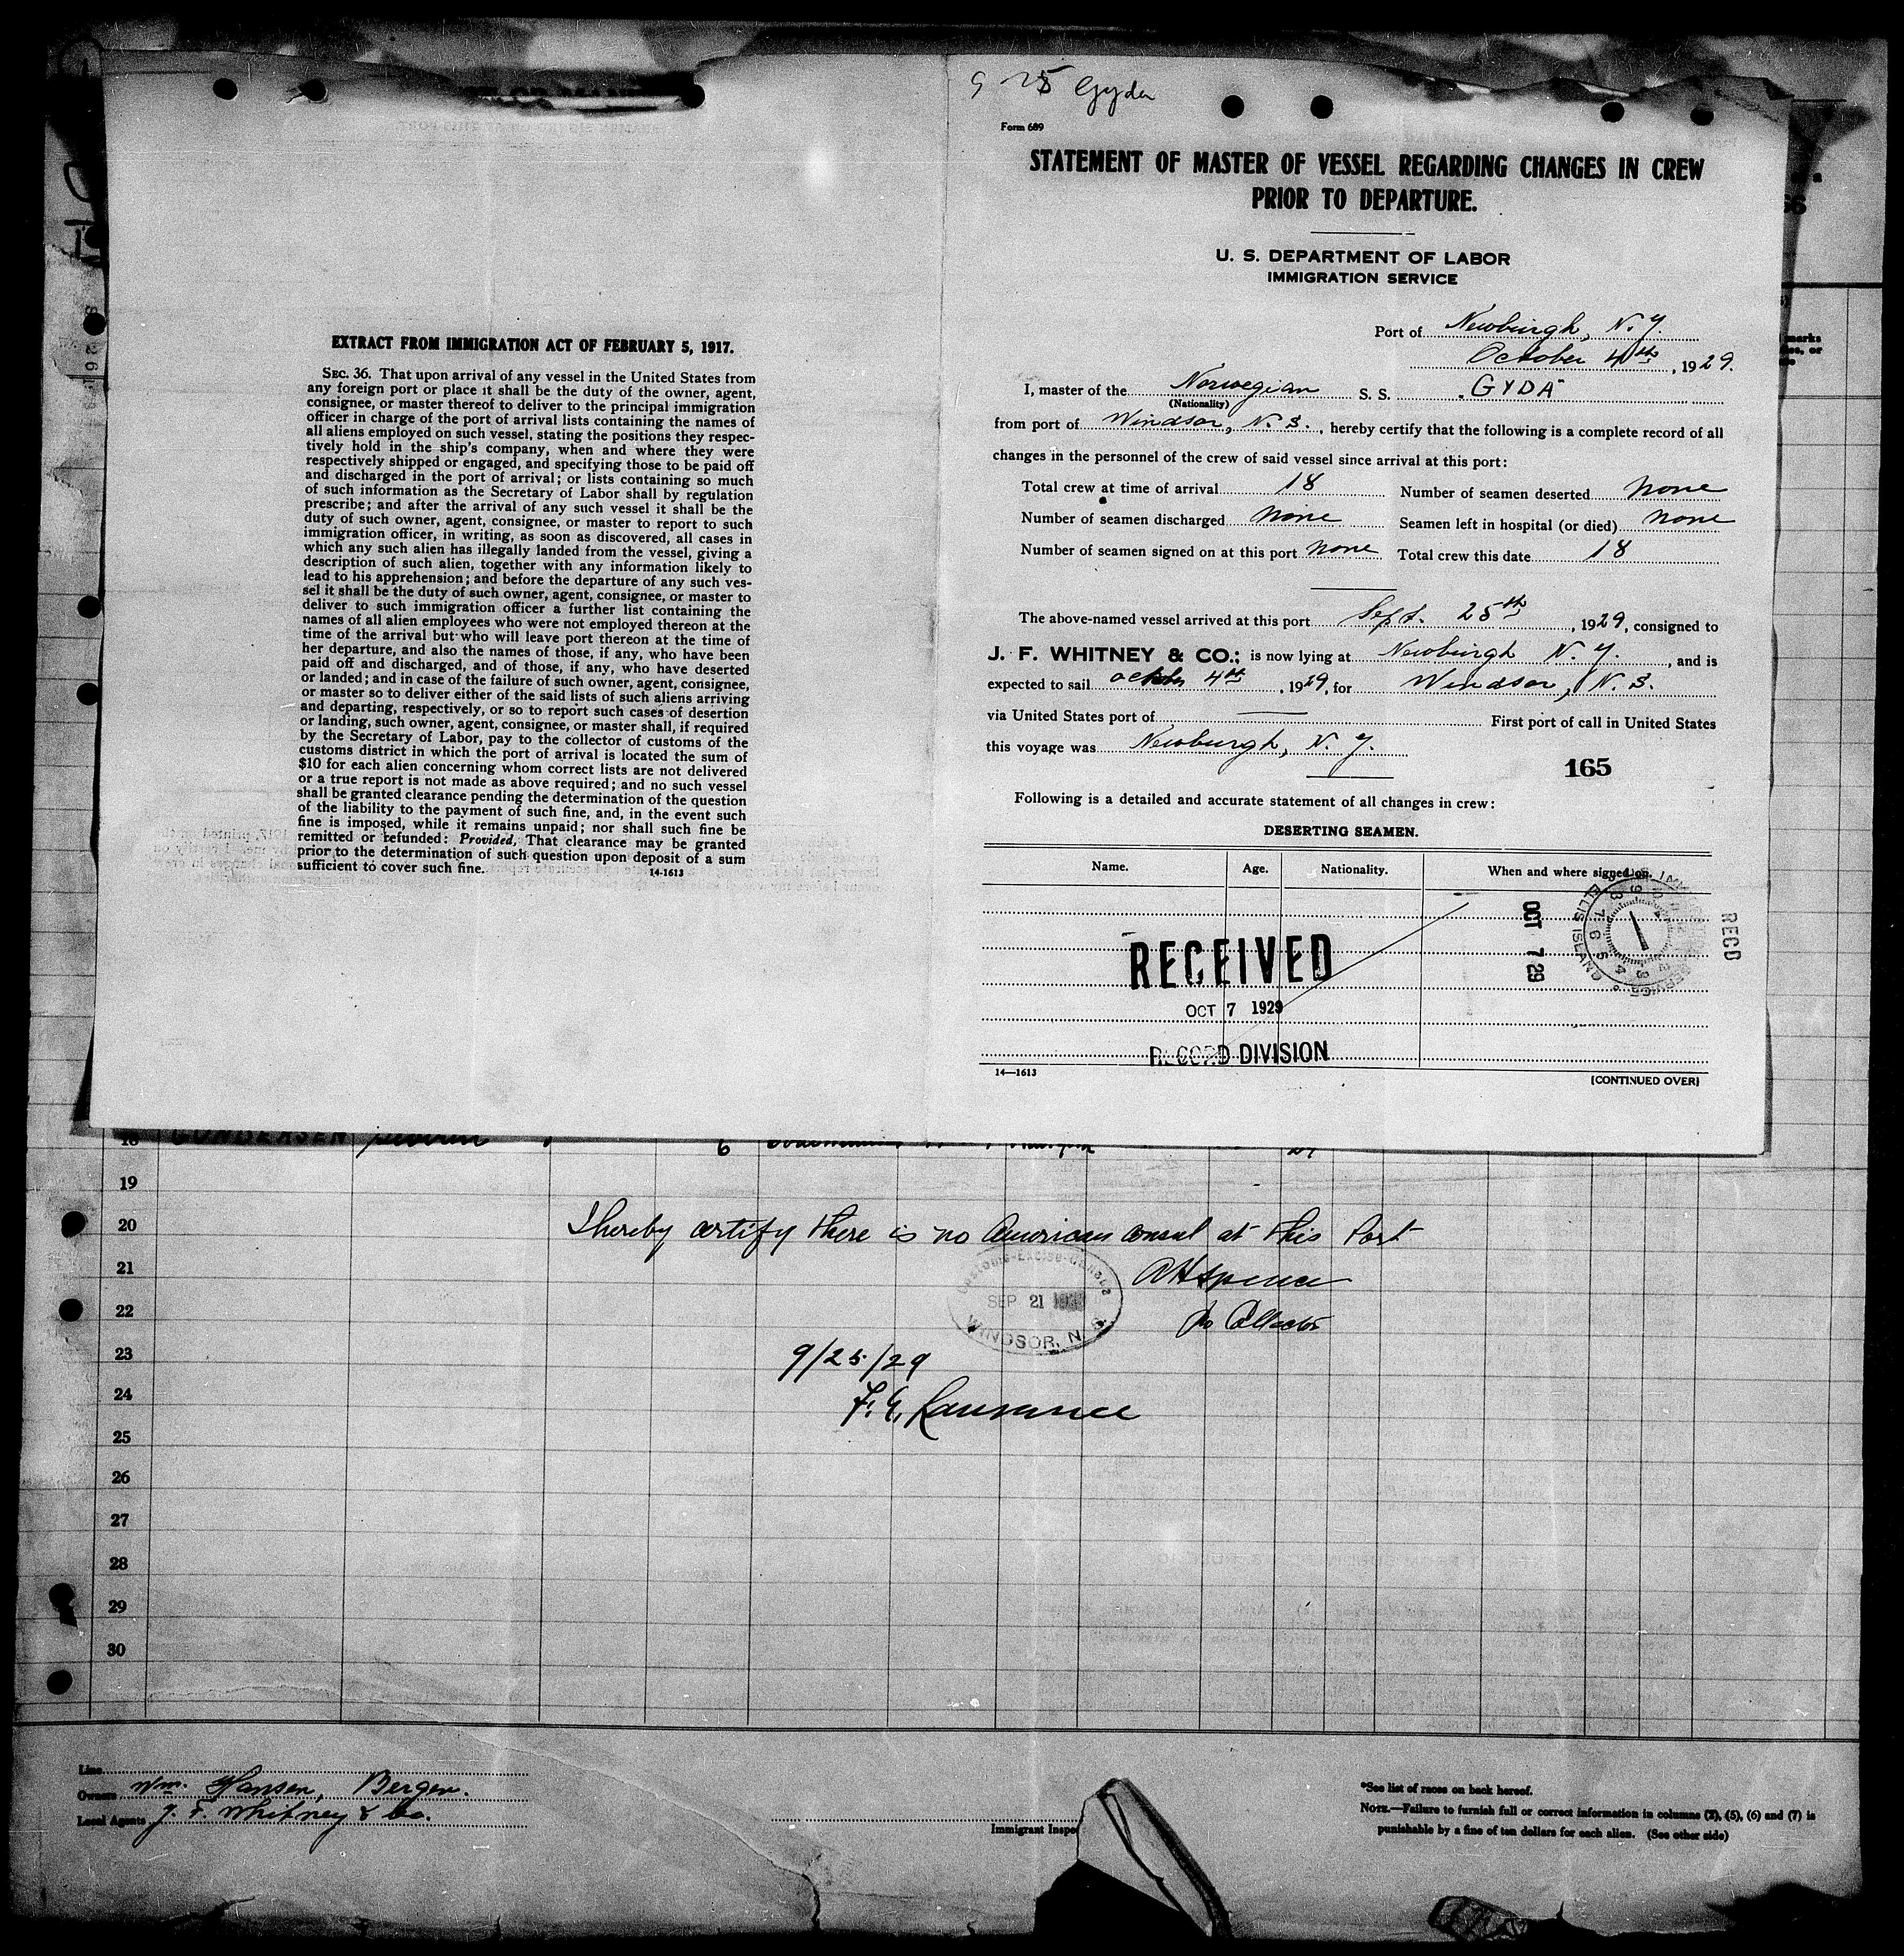 EXTRACT FROM IMMIGRATION ACT OF FEBRUARY 5, 1917.
SEC. 36. That upon arrival of any vessel in the United States from
any foreign port or place it shall be the duty of the owner, agent,
consignee, or master thereof to deliver to the principal immigration
officer in charge of the port of arrival lists containing the names of
all aliens employed on such vessel, stating the positions they respec-
tively hold in the ship's company, when and where they were
respectively shipped or engaged, and specifying those to be paid off
and discharged in the port of arrival; or lists containing so much
of such information as the Secretary of Labor shall by regulation
prescribe; and after the arrival of any such vessel it shall be the
duty of such owner, agent, consignee, or master to report to such
immigration officer, in writing, as soon as discovered, all cases in
which any such alien has illegally landed from the vessel, giving a
description of such alien, together with any information likely to
lead to his apprehension; and before the departure of any such ves-
sel it shall be the duty of such owner, agent, consignee, or master to
deliver to such immigration officer a further list containing the
names of all alien employees who were not employed thereon at the
time of the arrival but who will leave port thereon at the time of
her departure, and also the names of those, if any, who have been
paid off and discharged, and of those, if any, who have deserted
or landed; and in case of the failure of such owner, agent, consignee,
or master so to deliver either of the said lists of such aliens arriving
and departing, respectively, or so to report such cases of desertion
or landing, such owner, agent, consignee, or master shall, if required
by the Secretary of Labor, pay to the collector of customs of the
customs district in which the port of arrival is located the sum of
$10 for each alien concerning whom correct lists are not delivered
or a true report is not made as above required; and no such vessel
shall be granted clearance pending the determination of the question
of the liability to the payment of such fine, and, in the event such
fine is imposed, while it remains unpaid; nor shall such fine be
remitted or refunded: Provided, That clearance may be granted
prior to the determination of such question upon deposit of a sum
sufficient to cover such fine.
14-1613
Gyda
Form 689
STATEMENT OF MASTER OF VESSEL REGARDING CHANGES IN CREW
PRIOR TO DEPARTURE.
U. S. DEPARTMENT OF LABOR
IMMIGRATION SERVICE
Port of Newburgh, N. Y.
October 4th, 1929.
I, master of the Norwegian S. S. GYDA
(Nationality)
from port of Windsor, N. S., hereby certify that the following is a complete record of all
changes in the personnel of the crew of said vessel since arrival at this port:
Total crew at time of arrival 18 Number of seamen deserted none
Number of seamen discharged none Seamen left in hospital (or died) none
Number of seamen signed on at this port none Total crew this date 18
The above-named vessel arrived at this port Sept. 25th, 1929, consigned to
J. F. WHITNEY & CO.; is now lying at Newburgh N. Y., and is
expected to sail October 4th, 1929, for Windsor, N. S.
via United States port of First port of call in United States
this voyage was Newburgh, N. Y.
165
Following is a detailed and accurate statement of all changes in crew:
DESERTING SEAMEN.
Name. Age. Nationality. When and where signed on.
RECEIVED
OCT 7 1929
RECORD DIVISION
OCT 7 29
ELLIS ISLAND
RECD
14—1613
(CONTINUED OVER)
18 GUNDERSEN
19
20 I hereby certify there is no American consul at this Port
21 A H Spence
22 Collector
Customs-Excise-Canada
SEP 21
WINDSOR, N. S.
23 9/25/29
24
25
26
27
28
29
30
Line
Owners Wm. Hansen, Bergen.
Local Agents J. F. Whitney & Co.
Immigrant Inspe
*See list of races on back hereof.
NOTE.—Failure to furnish full or correct information in columns (2), (5), (6) and (7) is
punishable by a fine of ten dollars for each alien. (See other side)